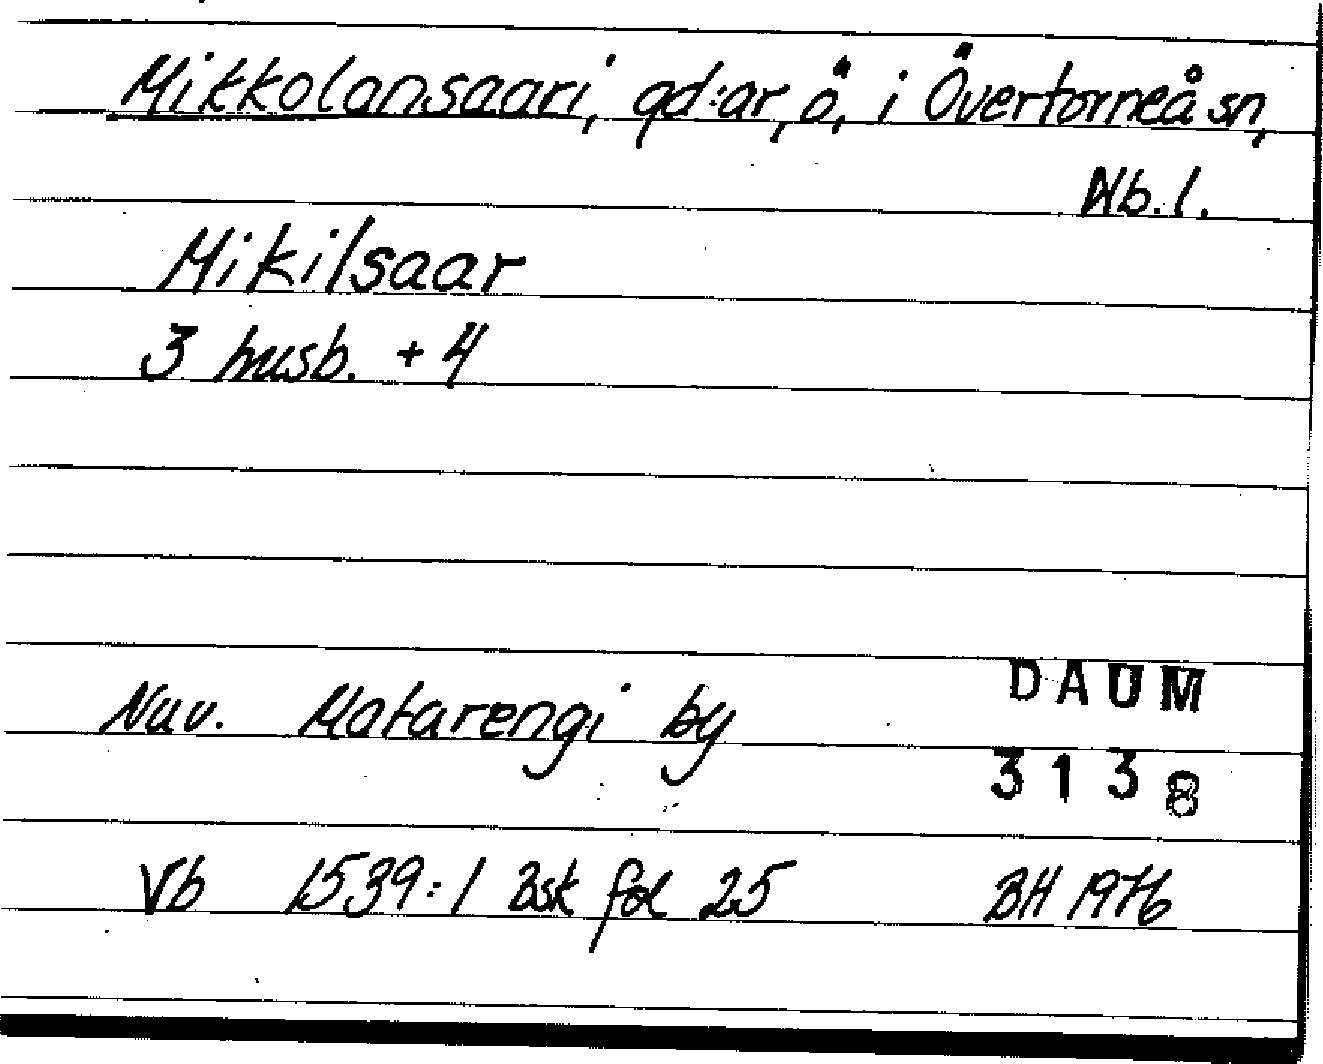 Mikkolansaari, gd:ar, ö, i Övertorneå sn,
Nb.l.
Mikilsaar
3 husb. + 4
Nuv. Matarengi by
DAUM
3138
Vb 1539:1 Bsk fol 25 BH 1976